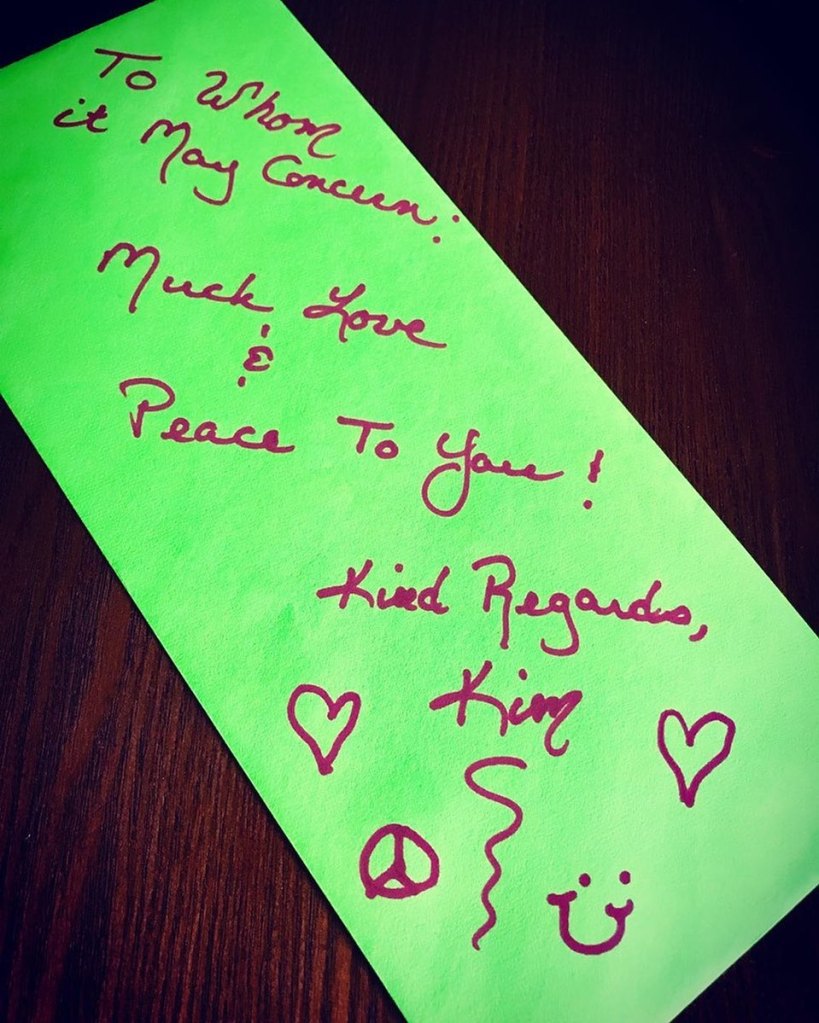 To Whom
it May Concern:
Much Love
&
Peace To You!
Kind Regards,
Kim